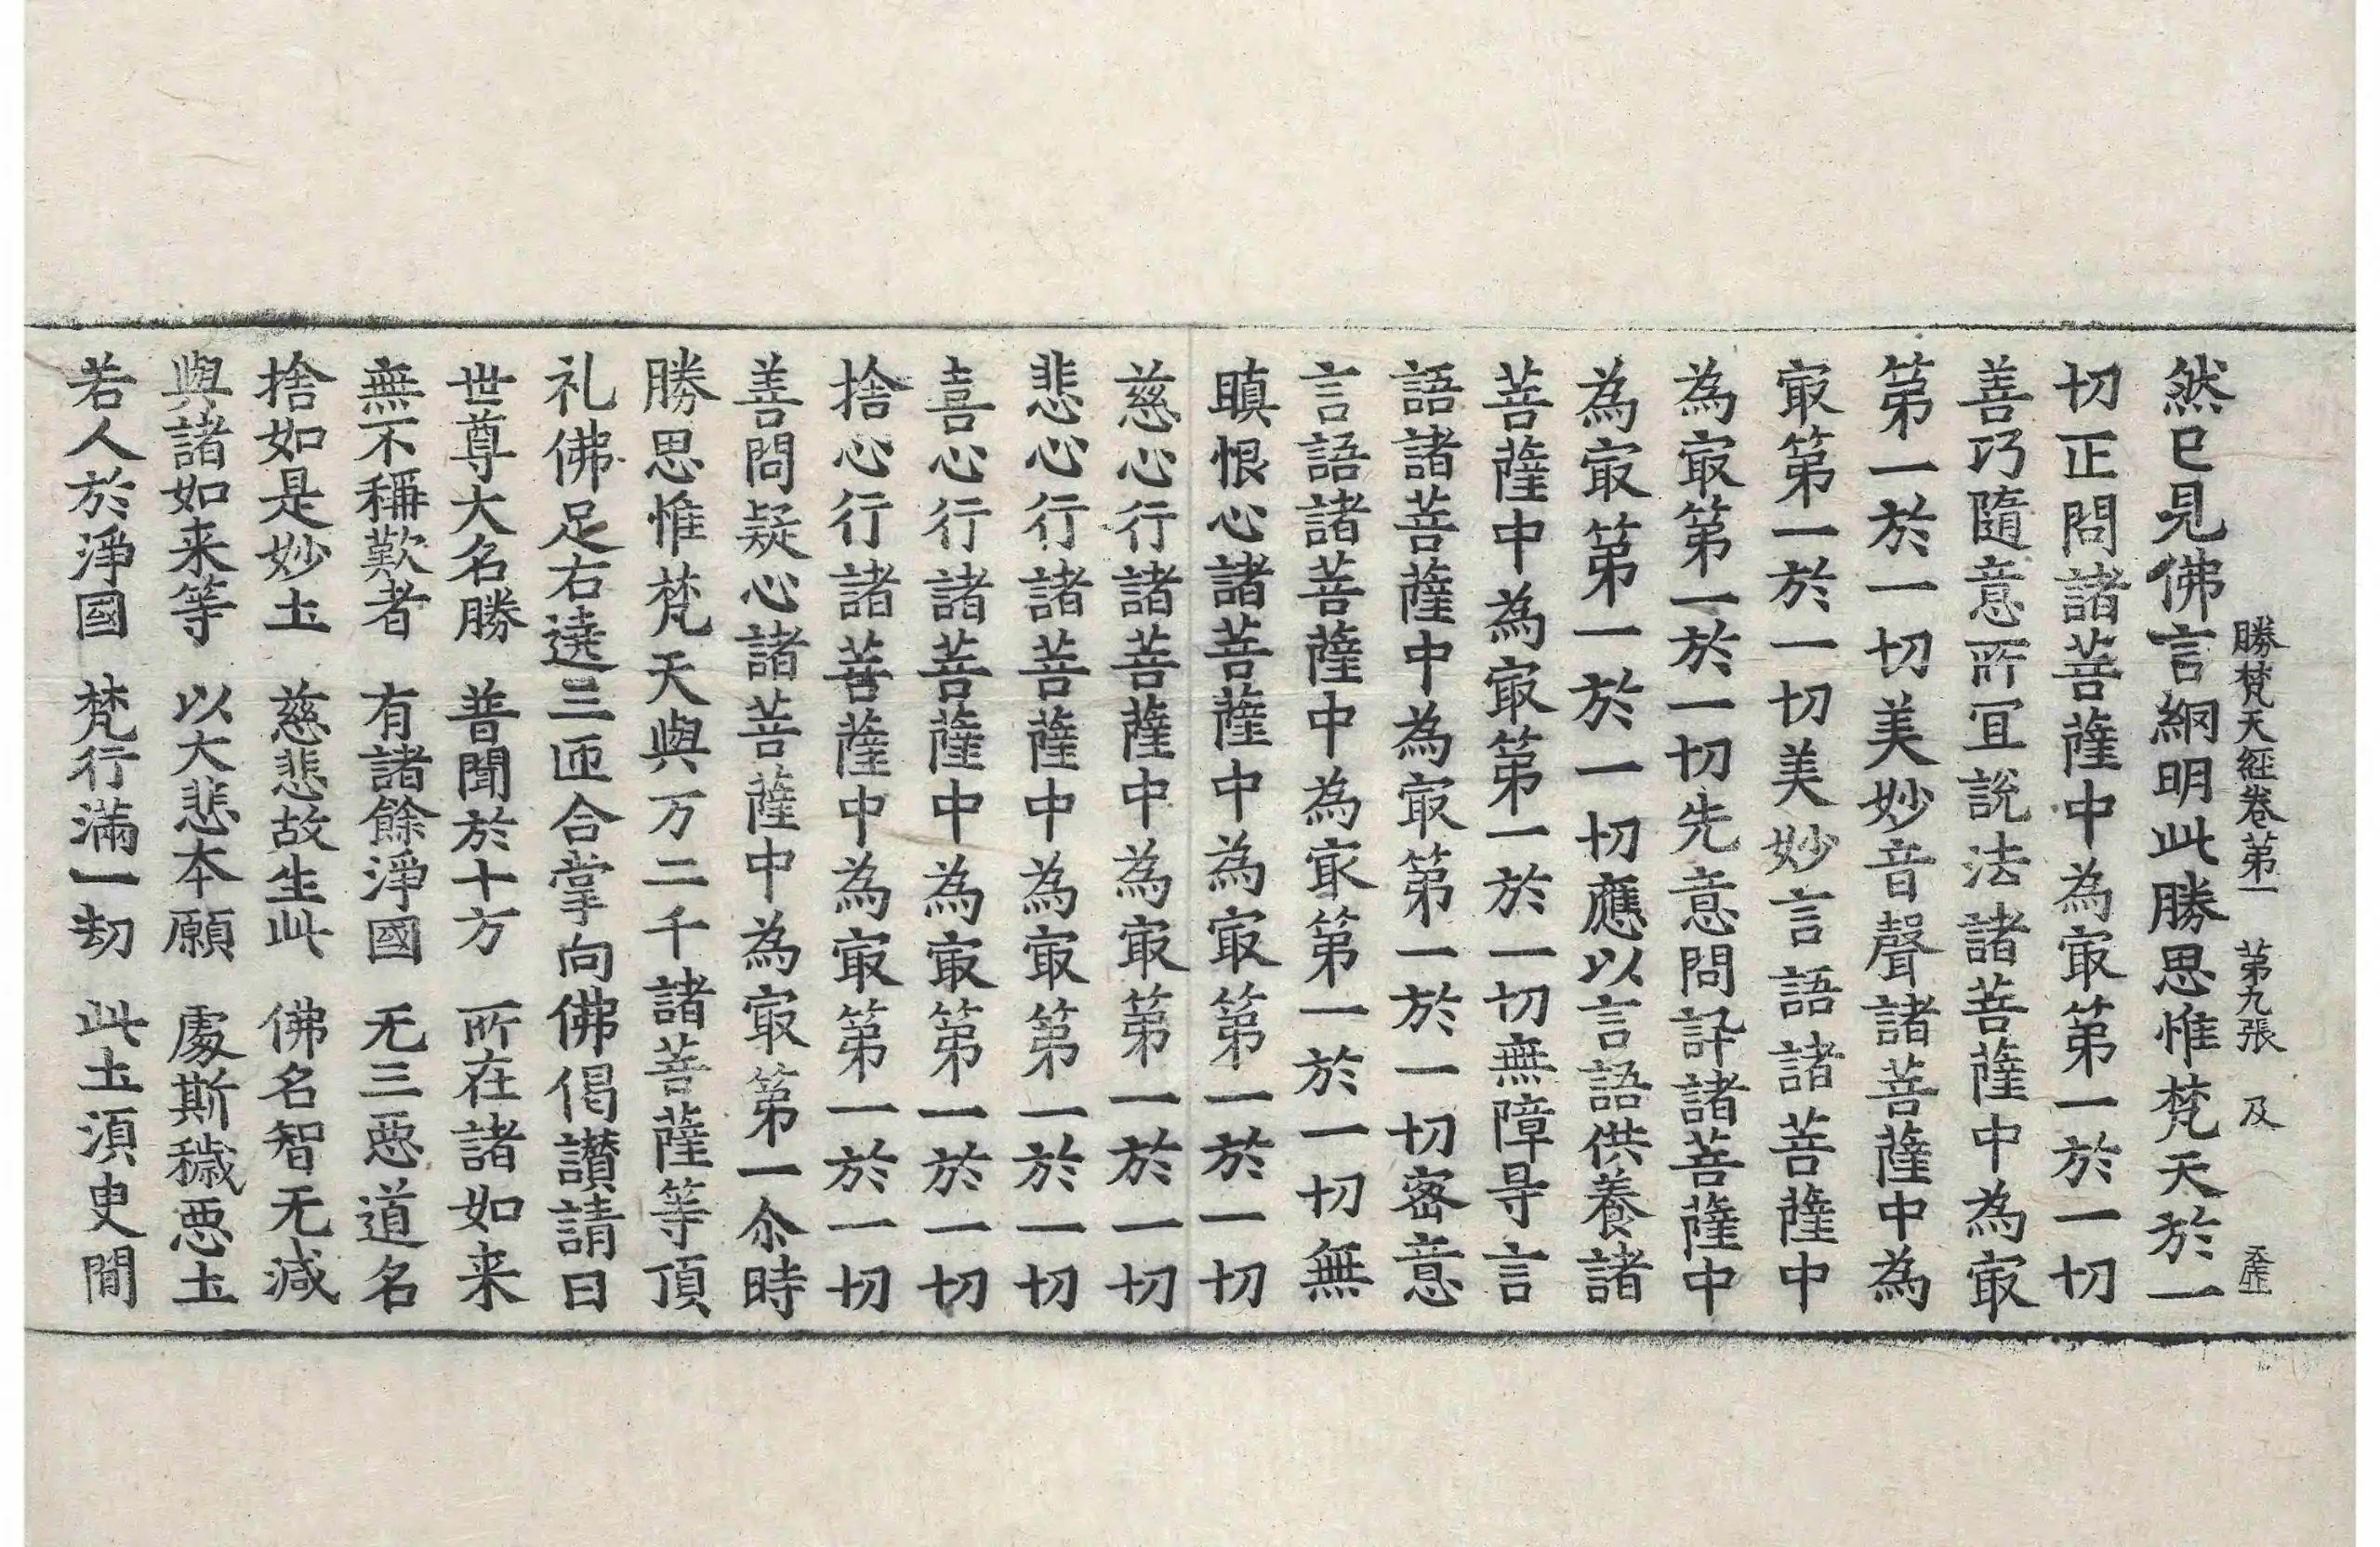 勝梵天經卷第一 第九張 及
然已見佛言綱明此勝思惟梵天於一
切正問諸菩薩中為㝡第一於一切
善巧隨意所冝說法諸菩薩中為㝡
第一於一切美妙音聲諸菩薩中為
㝡第一於一切美妙言語諸菩薩中
為㝡第一於一切先意問訐諸菩薩中
為㝡第一於一切應以言語供養諸
菩薩中為㝡第一於一切無障㝵言
語諸菩薩中為㝡第一於一切密意
言語諸菩薩中為㝡第一於一切無
瞋恨心諸菩薩中為㝡第一於一切
慈心行諸菩薩中為㝡第一於一切
悲心行諸菩薩中為㝡第一於一切
喜心行諸菩薩中為㝡第一於一切
捨心行諸菩薩中為㝡第一於一切
善問疑心諸菩薩中為㝡第一尒時
勝思惟梵天與万二千諸菩薩等頂
礼佛足右遶三匝合掌向佛偈讃請曰
世尊大名勝 普聞於十方 所在諸如来
無不稱歎者 有諸餘淨國 无三惡道名
捨如是妙土 慈悲故生此 佛名智无减
與諸如来等 以大悲本願 處斯穢惡土
若人於淨國 梵行滿一劫 此土須臾間